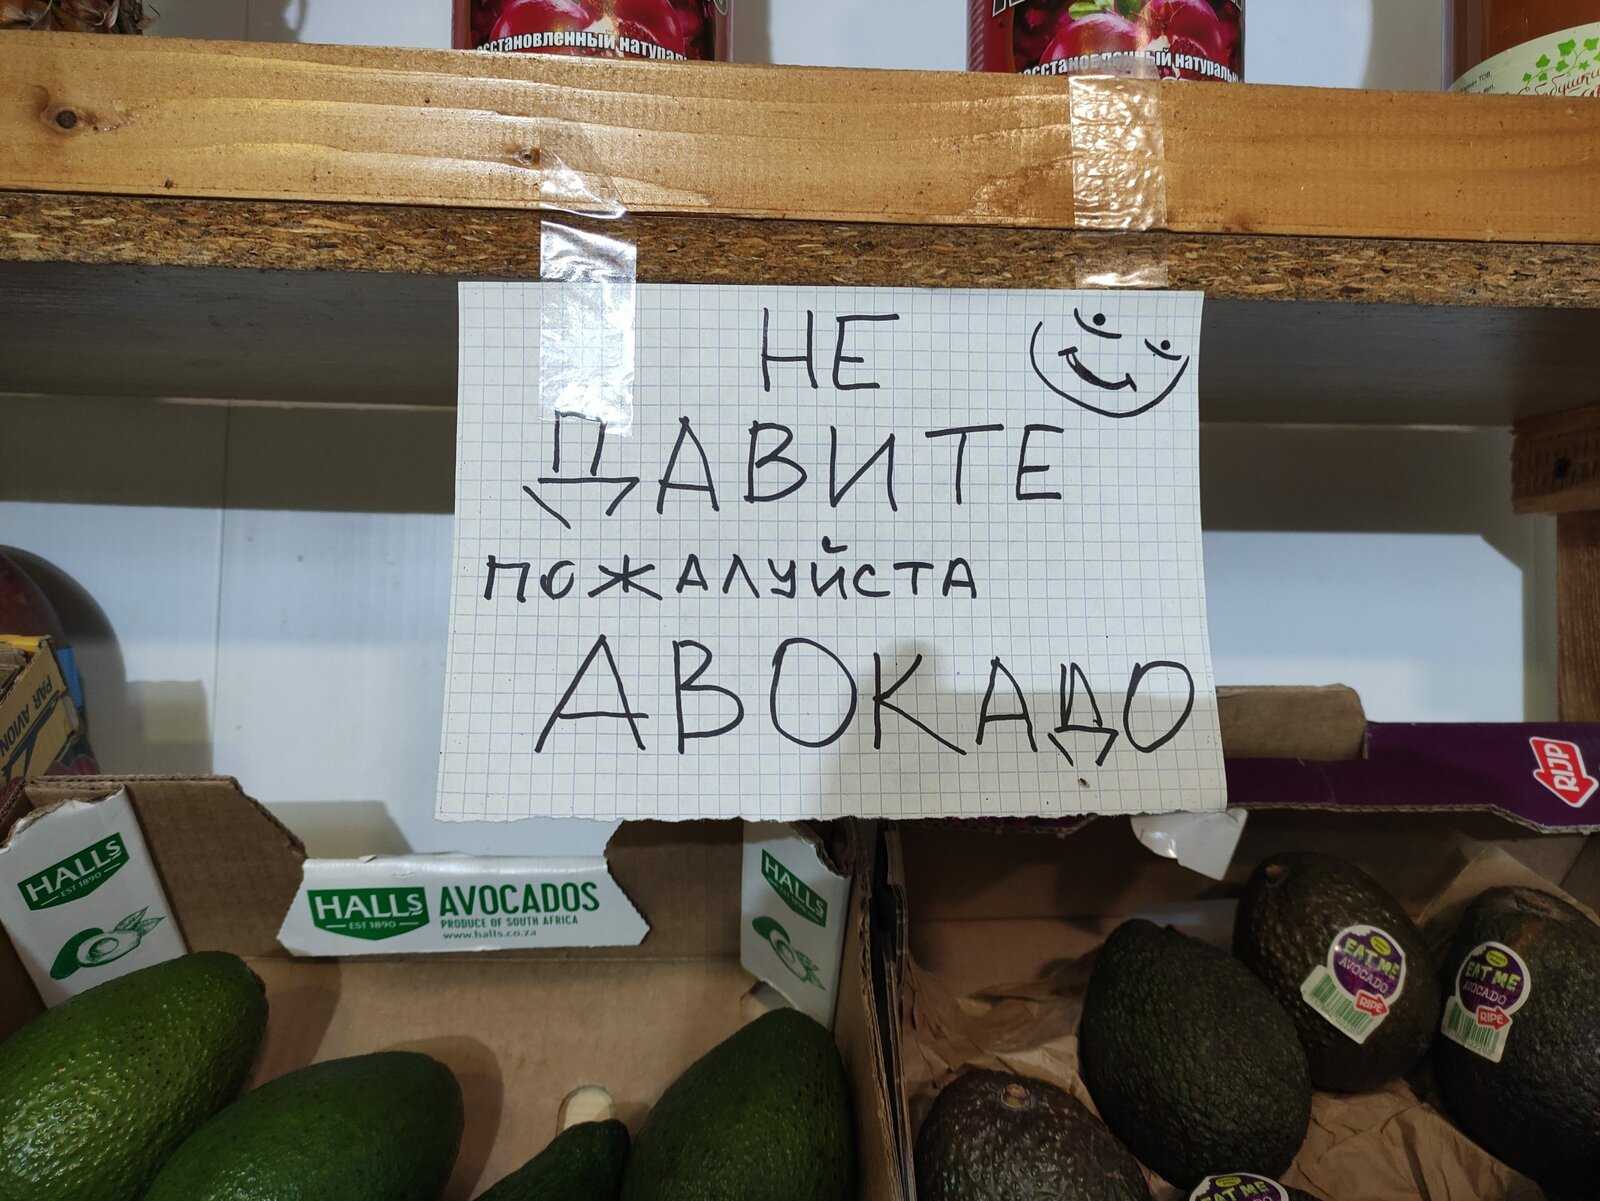 сстановленный натурал
сстановленный натуральн
НЕ
ДАВИТЕ
ПОЖАЛУЙСТА
АВОКАДО
PAR AVION
RIJP
HALLS
EST 1890
HALLS
EST 1890
AVOCADOS
PRODUCE OF SOUTH AFRICA
www.halls.co.za
HALLS
EST 1890
EAT ME
AVOCADO
RIPE
EAT ME
AVOCADO
RIPE
EAT ME